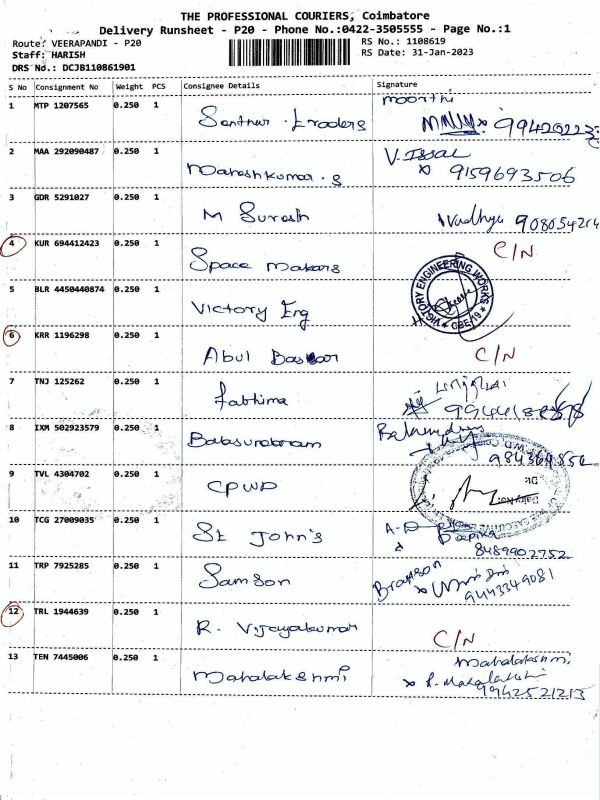 THE PROFESSIONAL COURIERS, Coimbatore
Delivery Runsheet - P20 - Phone No.:0422-3505555 - Page No.:1
Route: VEERAPANDI - P20 RS No.: 1108619
Staff: HARISH RS Date: 31-Jan-2023
DRS No.: DCJB110861901
S No Consignment No Weight PCS Consignee Details Signature
moorthi
1 MTP 1207565 0.250 1
V. Issac
2 MAA 292090487 0.250 1 9159693506
Maheshkumar.s
3 GDR 5291027 0.250 1 M Suresh
Vudhya 908054214
4 KUR 694412423 0.250 1 C/N
Space Makers
5 BLR 4450440874 0.250 1 VICTORY ENGINEERING WORKS
Victory Eng CBE-19
6 KRR 1196298 0.250 1
Abul Baskar C/N
7 TNJ 125262 0.250 1
Fathima
8 IXM 502923579 0.250 1
Balasundram
9 TVL 4304702 0.250 1
CPWD
10 TCG 27009035 0.250 1
St John's Deepika
8489902752
11 TRP 7925285 0.250 1
Samson 9443349081
12 TRL 1944639 0.250 1
R. Vijayakumar C/N
13 TEN 7445006 0.250 1 Mahalakshmi
Mahalakshmi 9942521213